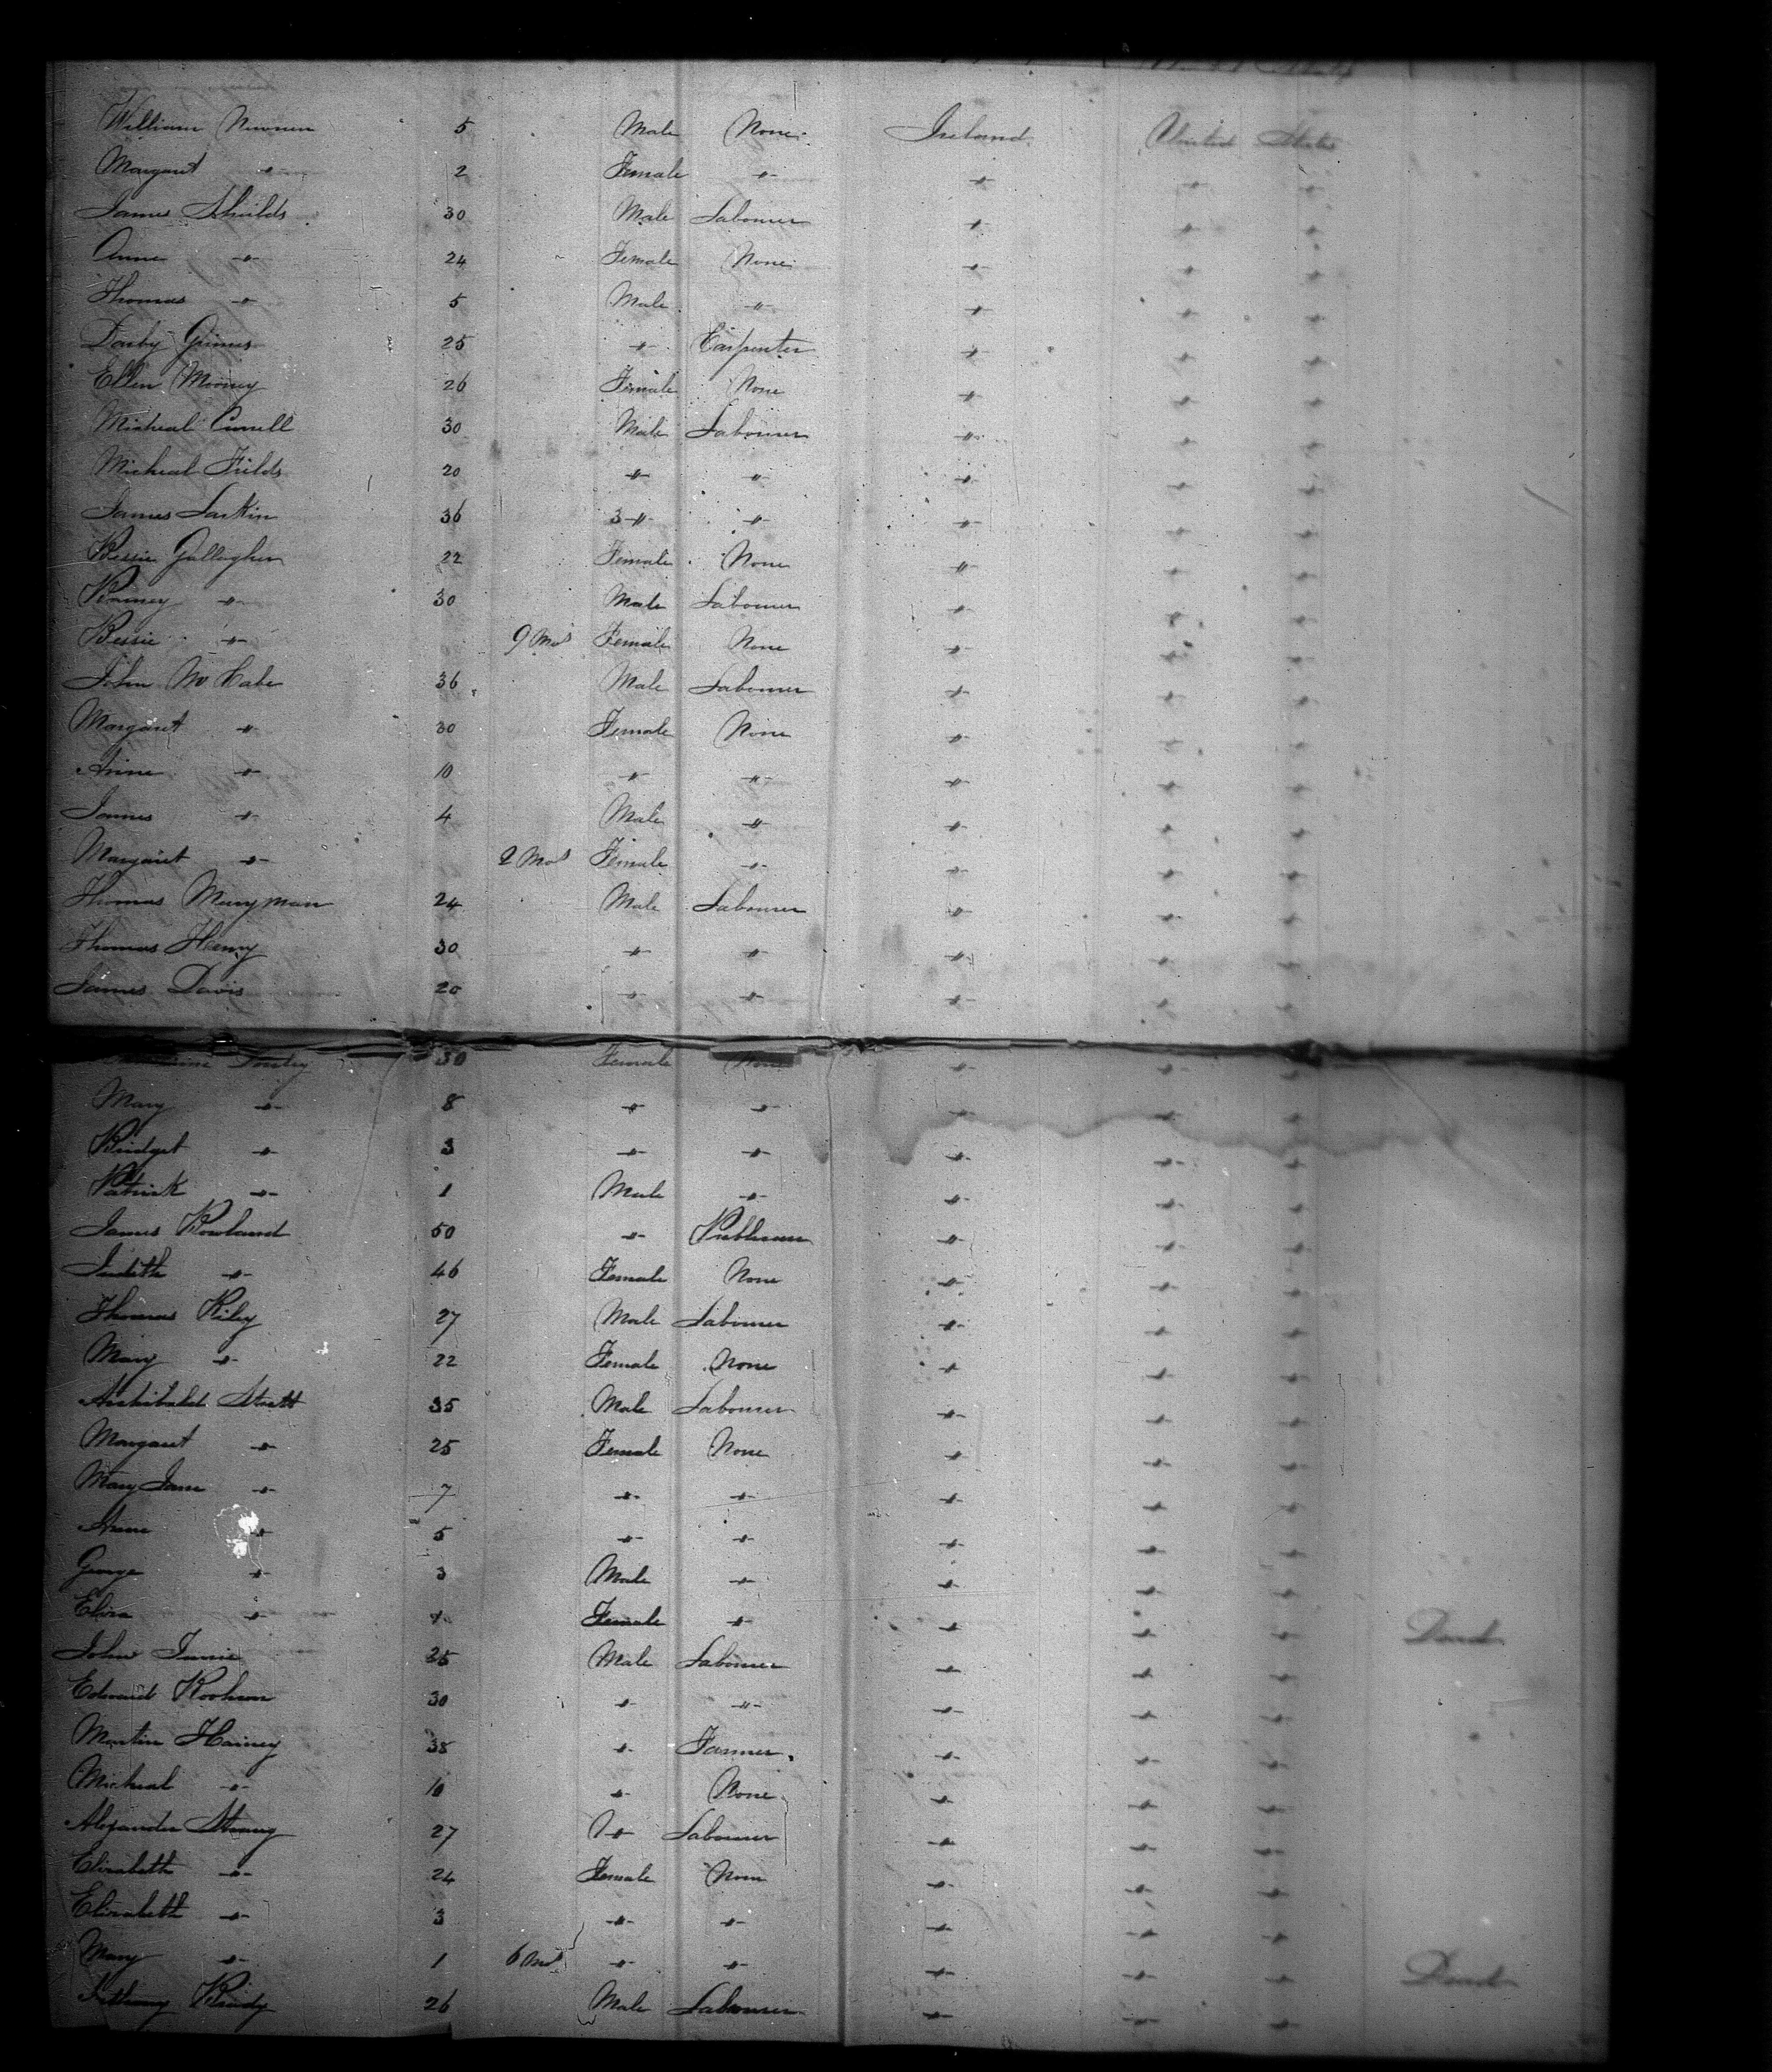 William 5 Male None Ireland United States
Margaret " 2 Female " " " "
James Shields 30 Male Labourer " " "
Anne " 24 Female None " " "
Thomas " 5 Male " " " "
Darby Grimes 25 " Carpenter " " "
Ellen Mooney 26 Female None " " "
Micheal 30 Male Labourer " " "
Micheal Fields 20 " " " " "
James Larkin 36 3 " " " " "
Bessie Gallagher 22 Female None " " "
" 30 Male Labourer " " "
Bessie " 9 Mos Female None " " "
John McCabe 36 Male Labourer " " "
Margaret " 30 Female None " " "
Anne " 10 " " " " "
James " 4 Male " " " "
Margaret " 2 Mos Female " " " "
Thomas Merryman 24 Male Labourer " " "
Thomas Heany 30 " " " " "
James Davis 20 " " " " "
30 Female None " " "
Mary " 8 " " " " "
Bridget " 3 " " " " "
Patrick " 1 Male " " " "
James Rowland 50 " Publican " " "
Judith " 46 Female None " " "
Thomas Riley 27 Male Labourer " " "
Mary " 22 Female None " " "
Archibald 35 Male Labourer " " "
Margaret " 25 Female None " " "
Mary Jane " 7 " " " " "
Anne " 5 " " " " "
George " 3 Male " " " "
Eliza " Female " " " " Dead
John 25 Male Labourer " " "
Edward 30 " " " " "
Martin Hainey 38 " Farmer " " "
Micheal " 10 " None " " "
Alexander Strang 27 " Labourer " " "
Elizabeth " 24 Female None " " "
Elizabeth " 3 " " " " "
Mary " 1 6 Mos " " " " " Dead
Anthony 26 Male Labourer " " "